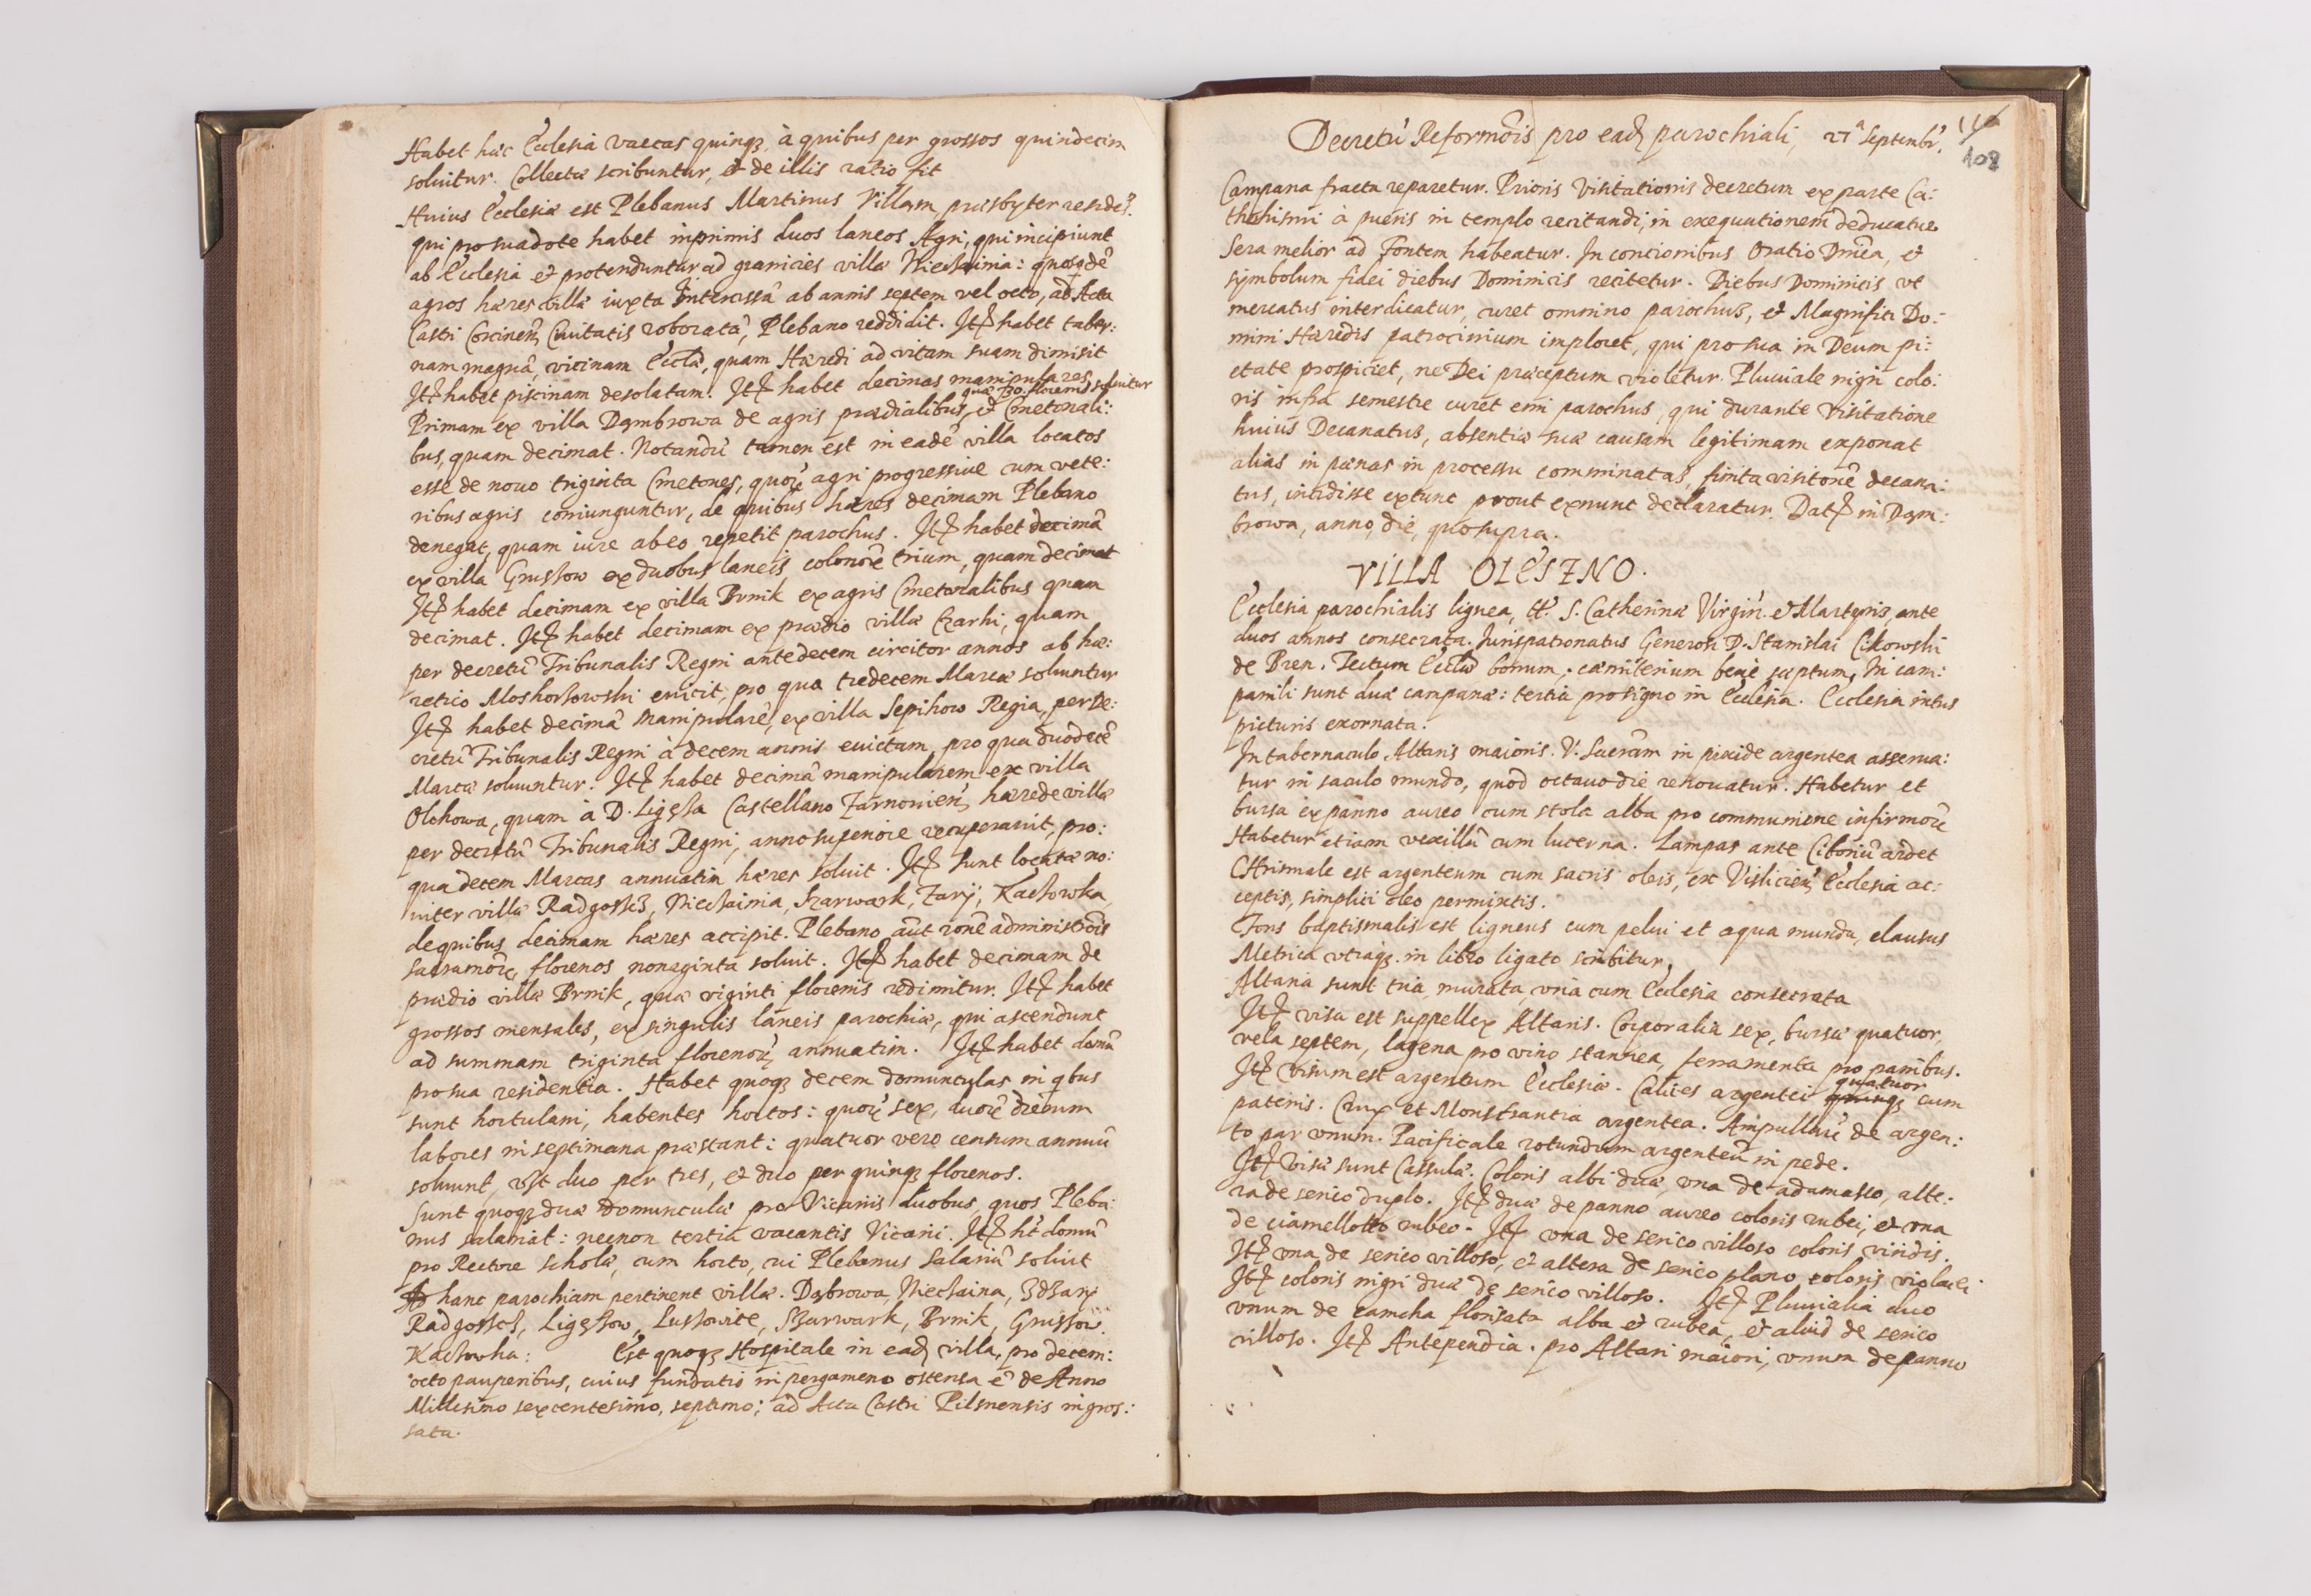 Habet hæc Ecclesia vaccas quinqꝫ à quibus per grossos quindecim
soluitur. Collectæ scribuntur, et de illis ratio fit
Huius Ecclesiæ est Plebanus Martinus Villam præsbyter
qui pro sua dote habet inprimis duos laneos Agri, qui incipiunt
ab Ecclesia et protenduntur ad granicies villæ Nieczainia:
agros hæres villæ iuxta ab annis septem vel octo, ad Acta
Castri Corcinen̄ Ciuitatis roboratā, Plebano reddidit. Itꝫ habet taber:
nam magnā, vicinam Eccłæ, quam Hæredi ad vitam suam dimisit
Itꝫ habet piscinam desolatam. Itꝫ habet decimas manipulares,
quæ 30. florenis soluitur
Primam ex villa Dąmbrowa de agris prædialibus, et Cmetonali:
bus, quam decimat. Notandū tamen est in eadē villa locatos
esse de nouo triginta Cmetones, quorū agri progressiue cum vete:
ribus agris coniunguntur, de quibus hæres decimam Plebano
denegat, quam iure ab eo repetit parochus. Itꝫ habet decimā
ex villa Gruszow ex duobus laneis colonorū trium, quam decimat
Itꝫ habet decimam ex villa Brnik ex agris Cmetonalibus quam
decimat. Itꝫ habet decimam ex prædio villæ Czarki, quam
per decretū Tribunalis Regni ante decem circiter annos ab hæ:
retico Moskorzowski euicit, pro qua tredecem Marcæ soluuntur
Itꝫ habet decimā manipularē, ex villa Sepihow Regia, per De:
cretū Tribunalis Regni à decem annis euictam, pro qua duodecē
Marcæ soluuntur. Itꝫ habet decimā manipularem ex villa
Olchowa, quam à D. Ligęza Castellano Zarnouien̄, hærede villæ
per decretū Tribunalis Regni, anno superiore recuperauit, pro:
qua decem Marcas annuatim hæres soluit. Itꝫ sunt locatæ no:
uiter villæ Radgoszcz, Nieczainia, Szarwark, Zary, Kaczowka,
de quibus decimam hæres accipit. Plebano aūt rōne administrōis
sacramōrū, florenos nonaginta soluit. Itꝫ habet decimam de
prædio villæ Brnik, quæ viginti florenis redimitur. Itꝫ habet
grossos mensales, ex singulis laneis parochiæ, qui ascendunt
ad summam triginta florenorū annuatim. Itꝫ habet domū
pro sua residentia. Habet quoqꝫ decem domunculas in qbus
sunt hortulani, habentes hortos: quorū sex, duorū dierum
labores in septimana præstant: quatuor vero censum annuū
soluunt, vꝫt duo per tres, et duo per quinqꝫ florenos.
Sunt quoqꝫ duæ domunculæ pro Vicarijs duobus, quos Pleba:
nus salariat: necnon tertia vacantis Vicarij. Itꝫ ht domū
pro Rectore scholæ, cum horto, cui Plebanus Salariū soluit
Ad hanc parochiam pertinent villæ. Dąbrowa, Nieczaina, Zdzary
Radgoszcz, Ligęzow, Luszowice, Szarwark, Brnik, Gruszow.
Kaczowka: Est quoqꝫ Hospitale in eadꝫ villa, pro decem:
octo pauperibus, cuius fundatio in pergameno ostensa ē de Anno
Millesimo sexcentesimo, septimo; ad Acta Castri Pilsnensis ingros:
sata.
Decretū Reformōis pro eadꝫ parochiali, 27ª Septembr̄.
108
Campana fracta reparetur. Prioris Visitationis decretum ex parte Ca:
thechismi à pueris in templo recitandi, in exequutionem deducatur
Sera melior ad Fontem habeatur. In concionibus Oratio Dmīca, et
symbolum fidei diebus Dominicis recitetur. Diebus Dominicis vt
mercatus interdicatur, curet omnino parochus, et Magnifici Do:
mini Hæredis patrocinium imploret, qui pro sua in Deum pi:
etate prospiciet, ne Dei præceptum violetur. Pluuiale nigri colo:
ris infra semestre curet emi parochus, qui durante Visitatione
huius Decanatus, absentiæ suæ causam legitimam exponat
alias in pœnas in processu comminatas, finita visitōnē decana:
tus, incidisse extunc prout exnunc declaratur. Datꝫ in Dąm:
browa, anno, die, quo supra.
VILLA OLESZNO.
Ecclesia parochialis lignea, tt. S. Catherinæ Virgin̄. et Martyris, ante
duos annos consecrata. Jurispatronatus Generosi D. Stanislai Cikowski
de Bren. Tectum Eccłæ bonum, cæmiterium bene septum, In cam:
panili sunt duæ campanæ: tertia pro signo in Ecclesia. Ecclesia intus
picturis exornata.
In tabernaculo Altaris maioris. V. Sacrām in pixide argentea asserua:
tur in saculo mundo, quod octauo die renouatur. Habetur et
bursa ex panno aureo cum stola alba pro communione infirmorū
Habetur etiam vexillū cum lucerna. Lampas ante Ciboriū ardet
Chrismale est argenteum cum sacris oleis, ex Vislicien̄ Ecclesia ac:
ceptis, simplici oleo permixtis.
Fons baptismalis est ligneus cum pelui et aqua munda, clausus
Metrica vtraqꝫ in libro ligato scribitur,
Altaria sunt tria, murata, vna cum Ecclesia consecrata
Itꝫ visa est suppellex Altaris. Corporalia sex, bursæ quatuor,
vela septem, lagena pro vino stannea, ferramenta pro panibus.
Itꝫ visum est argentum Ecclesiæ. Calices argentei quatuor cum
patenis. Crux et Monstrantia argentea. Ampullarū de argen:
to par vnum. Pacificale rotundum argenteū in pede.
Itꝫ Visæ sunt Cassulæ. Coloris albi duæ, vna de adamasco, alte:
ra de serico duplo. Itꝫ duæ de panno aureo coloris rubei, et vna
de ciamellotto rubeo. Itꝫ vna de serico villoso coloris viridis.
Itꝫ vna de serico villoso, et altera de serico plano coloris violacei
Itꝫ coloris nigri duæ de serico villoso. Itꝫ Pluuialia duo
vnum de camcha florisata alba et rubea, et aliud de serico
villoso. Itꝫ Antependia. pro Altari maiori, vnum de panno